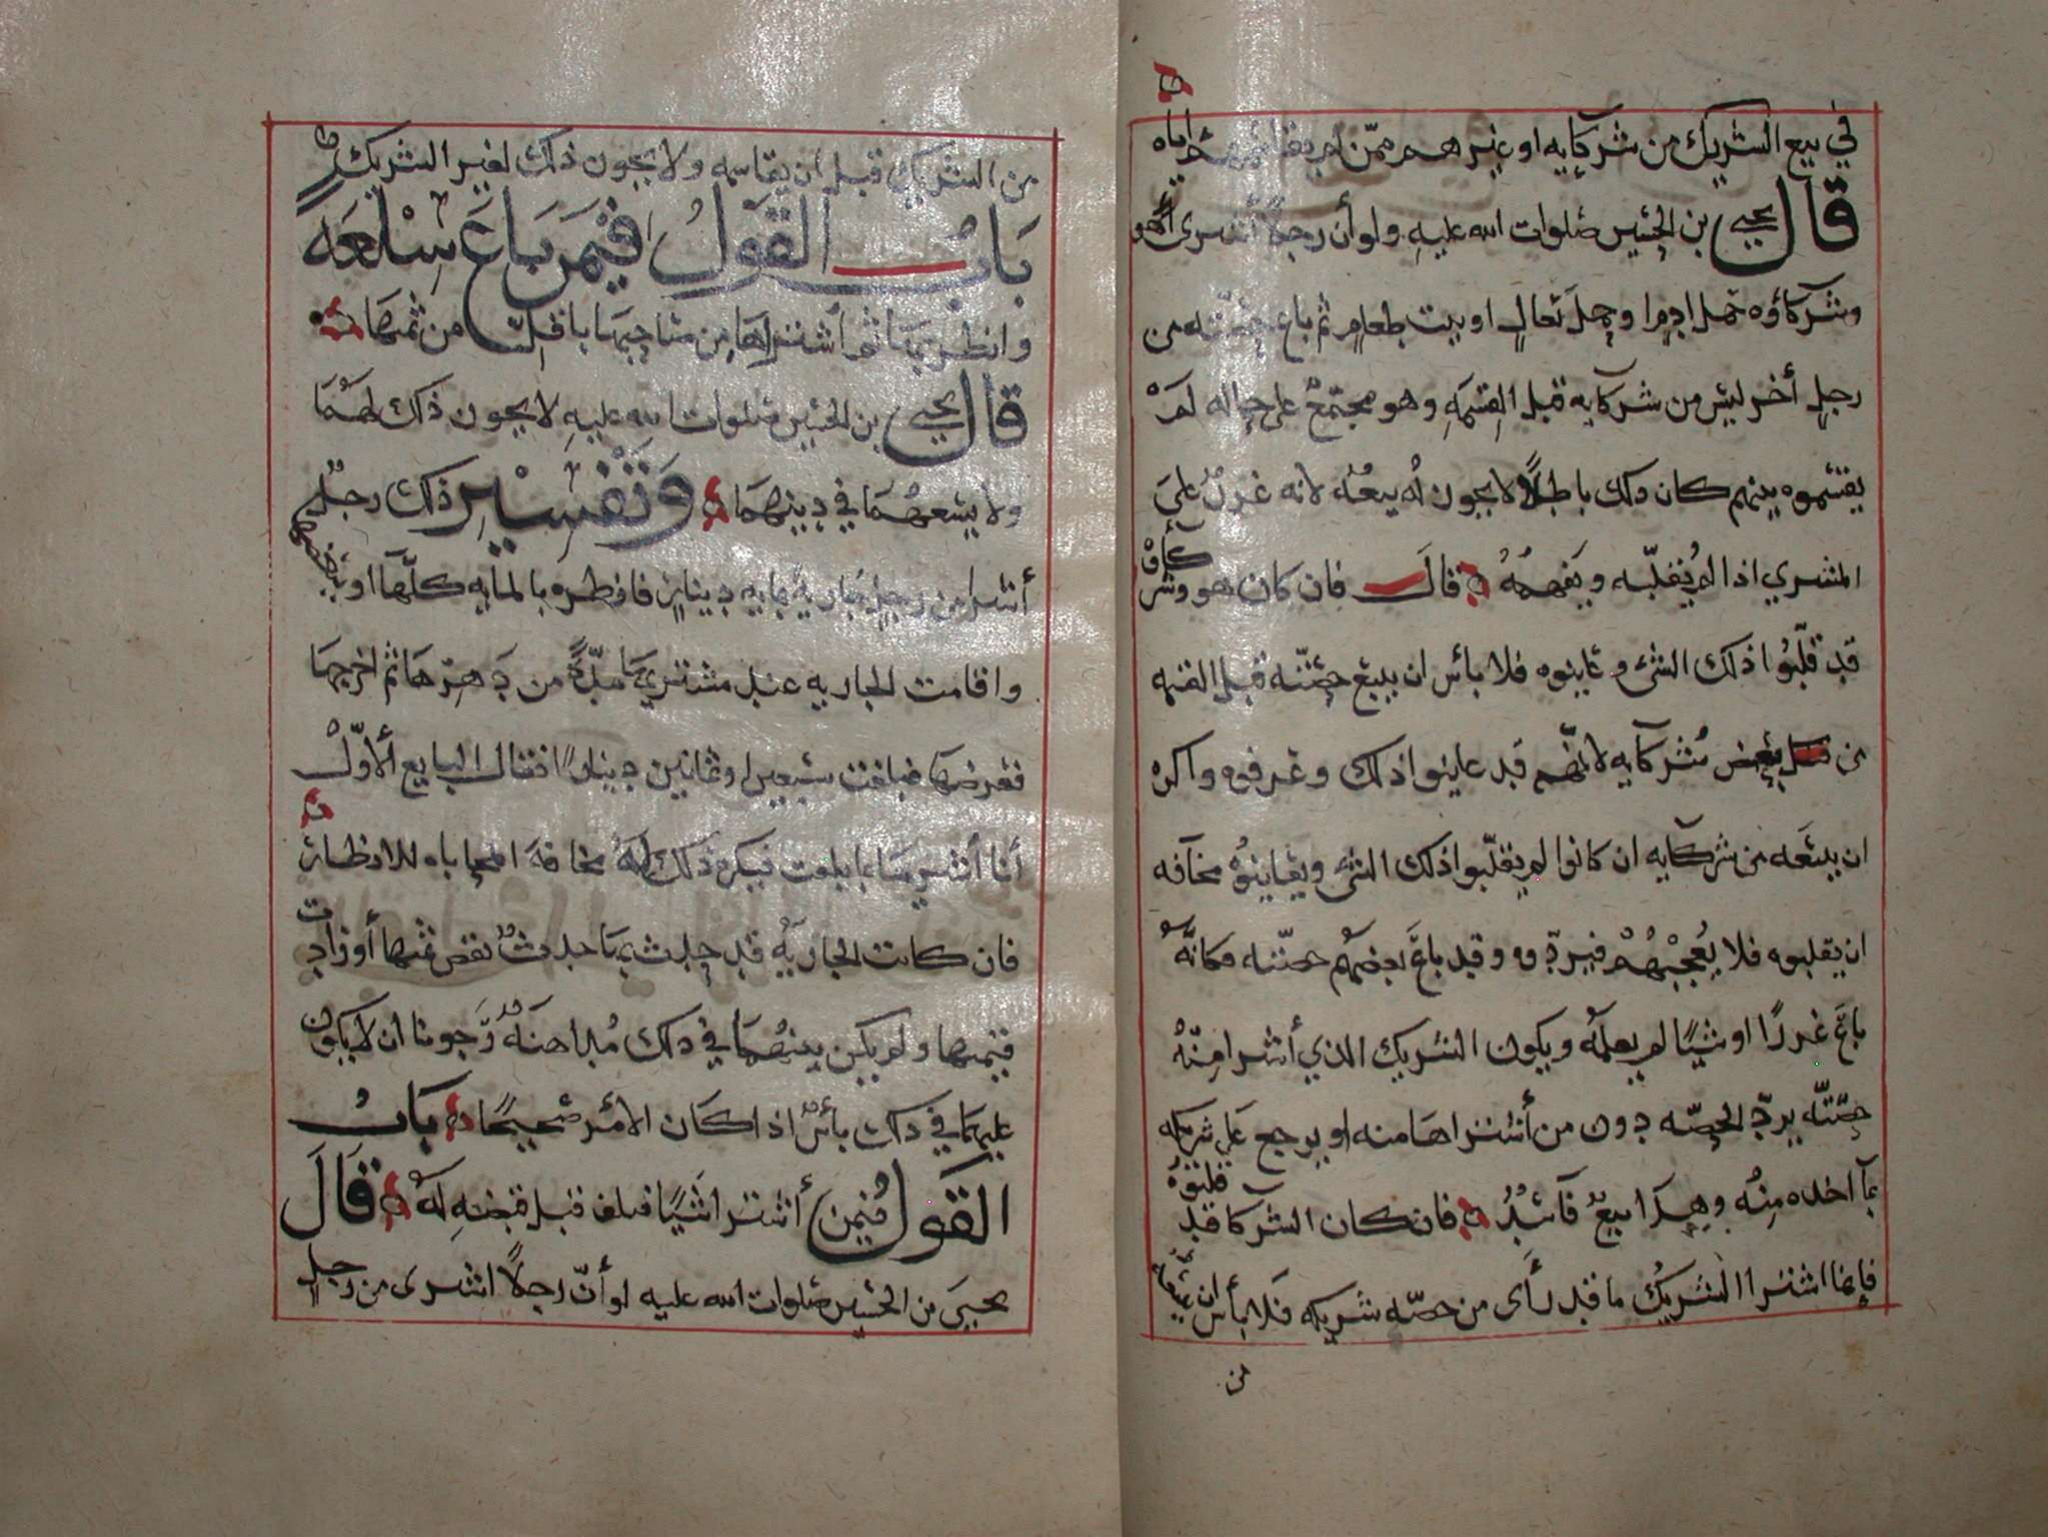 في بيع الشريك من شركايه او غيرهم ممن لم يقاسمهم اياه
قال يحيى بن الحسين صلوات الله عليه ولو أن رجلا أشترى هو
وشركاؤه حمل ادم او حمل نعال او بيت طعام ثم باع حصته من
رجل أخر ليس من شركايه قبل القسمه وهو مجتمع على حاله لم
يقتسموه بينهم كان ذلك باطلا لا يجوز له بيعه لانه غرر على
المشتري اذا لم يقلبه ويفهمه قال فان كان هو وشركاؤه
قد قلبوا ذلك الشئ وعاينوه فلا بأس ان يبيع حصته قبل القسمه
من بعض شركايه لانهم قد عاينوا ذلك وعرفوه واكره
ان يبيعه من شركايه ان كانوا لم يقلبوا ذلك الشئ ويعاينوه مخافه
ان يقلبوه فلا يعجبهم فيردوه وقد باع بعضهم حصته فكانه
باع غررا او شيا لم يعلمه ويكون الشريك الذي أشترا منه
حصته يرد الحصه دون من أشتراها منه او يرجع على شريكه
بما اخذه منه وهذا بيع فاسد فان كان الشركا قد قلبوه
فانما اشترا الشريك ما قد رأى من حصه شريكه فلا بأس ان يبيعه
من
من الشريك قبل ان يقاسمه ولا يجوز ذلك لغير الشريك
باب القول فيمن باع سلعه
وانظر بها ثم أشتراها من صاحبها باقل من ثمنها
قال يحيى بن الحسين صلوات الله عليه لا يجوز ذلك لهما
ولا يسعهما في دينهما وتفسير ذلك رجل
أشترا من رجل جاريه بمايه دينار فانظره بالمايه كلها او ببعضها
واقامت الجاريه عند مشتريها مده من دهرها ثم اخرجها
فعرضها فبلغت سبعين او ثمانين دينارا فقال البايع الأول
أنا أشتريها بما بلغت فيكره ذلك له مخافة المحاباه للانظار
فان كانت الجاريه قد حدث بها حدث نقص ثمنها أو زادت
قيمتها ولم يكن بينهما في ذلك مداهنه رجونا ان لا يكون
عليهما في ذلك بأس اذا كان الامر صحيحا باب
القول فيمن أشترا شيا فتلف قبل قبضه له قال
يحيى بن الحسين صلوات الله عليه لو أن رجلا اشترى من رجل